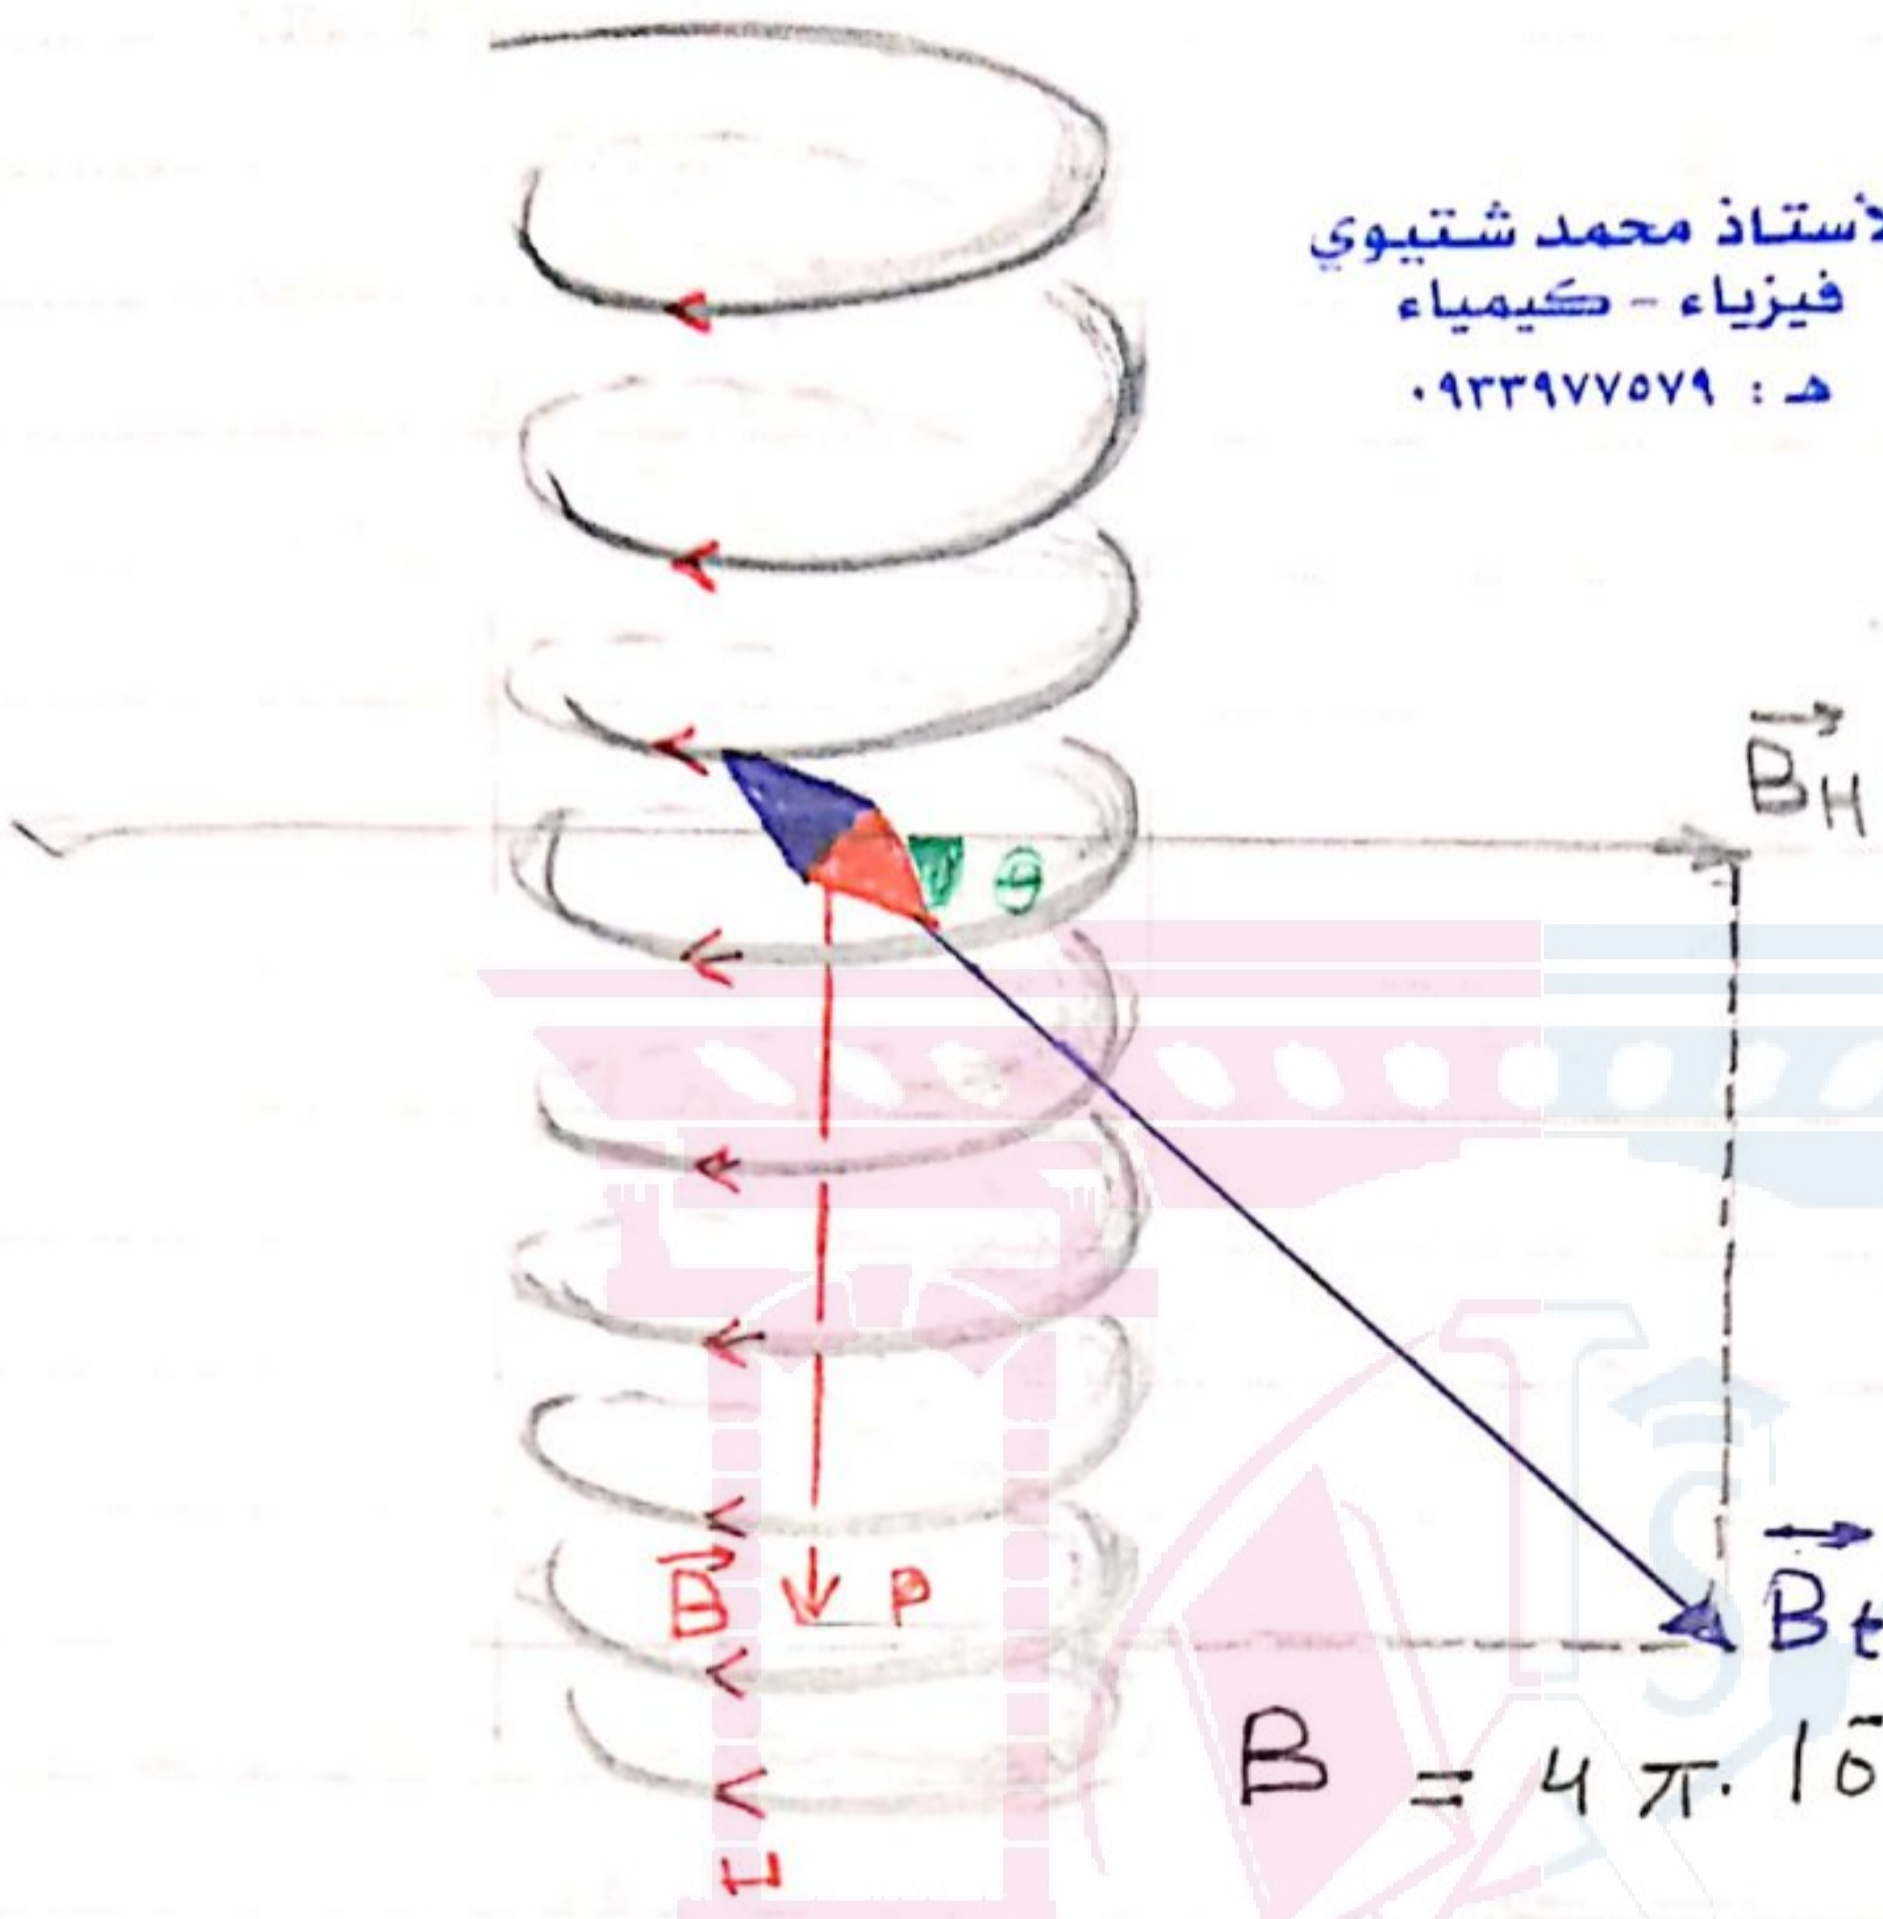 لأستاذ محمد شتيوي
فيزياء - كيمياء
هـ : ٠٩٣٣٩٧٧٥٧٩
B⃗H
θ
B⃗ P
B⃗t
B = 4 π . 10⁻
I